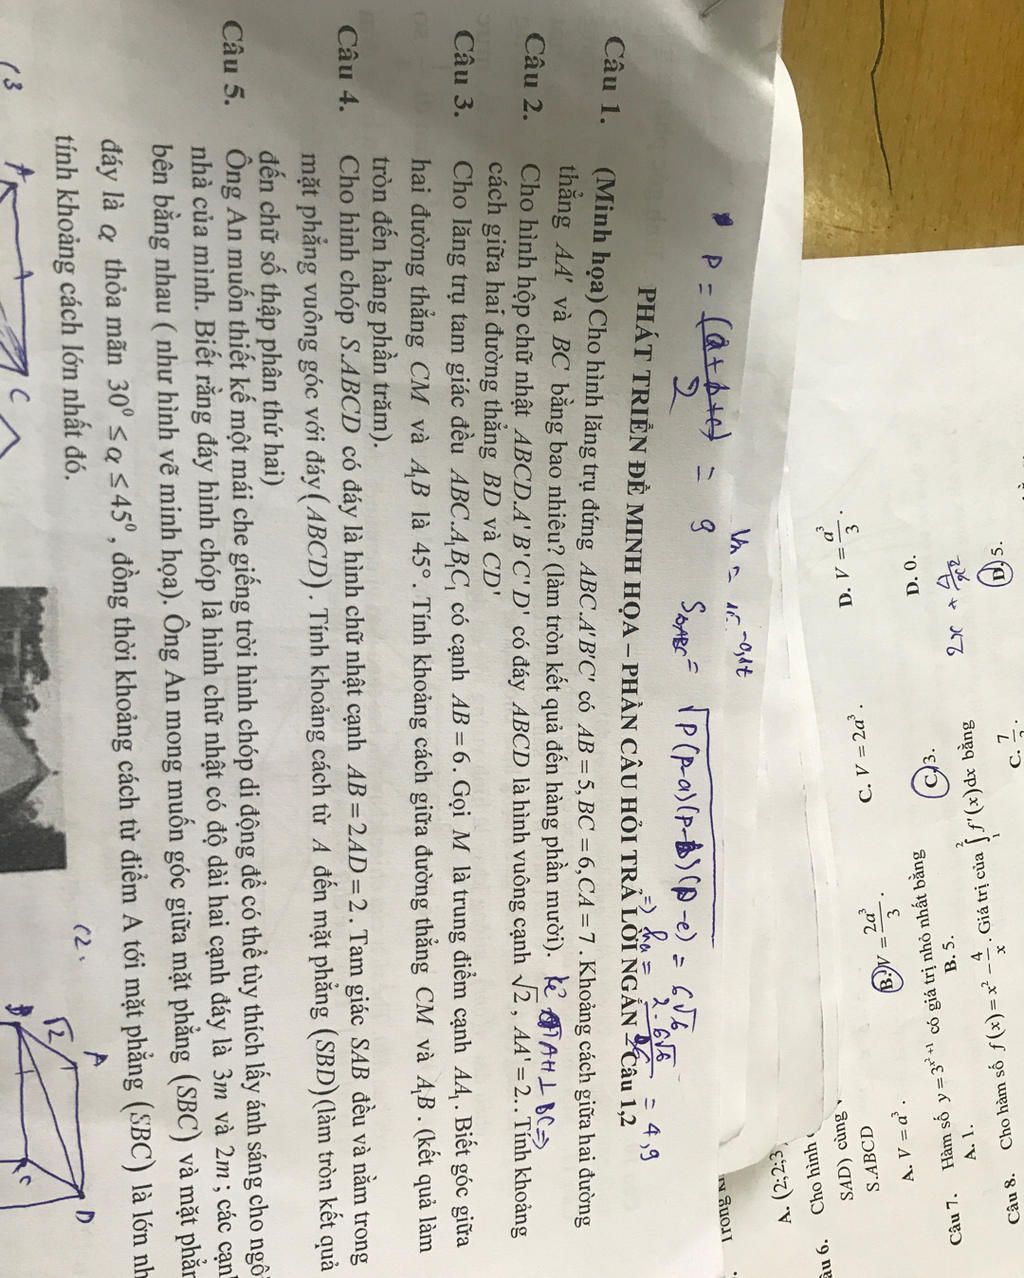 PHÁT TRIỂN ĐỀ MINH HỌA – PHẦN CÂU HỎI TRẢ LỜI NGẮN – Câu 1,2
Câu 1. (Minh họa) Cho hình lăng trụ đứng ABC.A'B'C' có AB = 5, BC = 6, CA = 7. Khoảng cách giữa hai đường
thẳng AA' và BC bằng bao nhiêu? (làm tròn kết quả đến hàng phần mười).
Câu 2. Cho hình hộp chữ nhật ABCD.A'B'C'D' có đáy ABCD là hình vuông cạnh √2, AA' = 2.. Tính khoảng
cách giữa hai đường thẳng BD và CD'
Câu 3. Cho lăng trụ tam giác đều ABC.A₁B₁C₁ có cạnh AB = 6. Gọi M là trung điểm cạnh AA₁. Biết góc giữa
hai đường thẳng CM và A₁B là 45°. Tính khoảng cách giữa đường thẳng CM và A₁B. (kết quả làm
tròn đến hàng phần trăm).
Câu 4. Cho hình chóp S.ABCD có đáy là hình chữ nhật cạnh AB = 2AD = 2. Tam giác SAB đều và nằm trong
mặt phẳng vuông góc với đáy (ABCD). Tính khoảng cách từ A đến mặt phẳng (SBD) (làm tròn kết quả
đến chữ số thập phân thứ hai)
Câu 5. Ông An muốn thiết kế một mái che giếng trời hình chóp di động để có thể tùy thích lấy ánh sáng cho ngô
nhà của mình. Biết rằng đáy hình chóp là hình chữ nhật có độ dài hai cạnh đáy là 3m và 2m; các cạn
bên bằng nhau ( như hình vẽ minh họa). Ông An mong muốn góc giữa mặt phẳng (SBC) và mặt phẳ
đáy là α thỏa mãn 30⁰ ≤ α ≤ 45⁰, đồng thời khoảng cách từ điểm A tới mặt phẳng (SBC) là lớn nh
tính khoảng cách lớn nhất đó.
P = (a+b+c)/2 = 9
S∆ABC = √P(p-a)(p-b)(p-c) = 6√6
=> ha = 2.6√6/6 = 4,9
Kẻ AH ⊥ BC =>
A
C
C2.
√2
A
B
C
D
A. (2;2;3
Câu 6. Cho hình
SAD) cùng
S.ABCD
A. V = a³.
B. V = 2a³/3.
C. V = 2a³.
D. V = a³/3.
Câu 7. Hàm số y = 3^(x²+1) có giá trị nhỏ nhất bằng
A. 1.
B. 5.
C. 3.
D. 0.
2x + 4/x²
Câu 8. Cho hàm số f(x) = x² − 4/x. Giá trị của ∫₁² f'(x)dx bằng
D. 5.